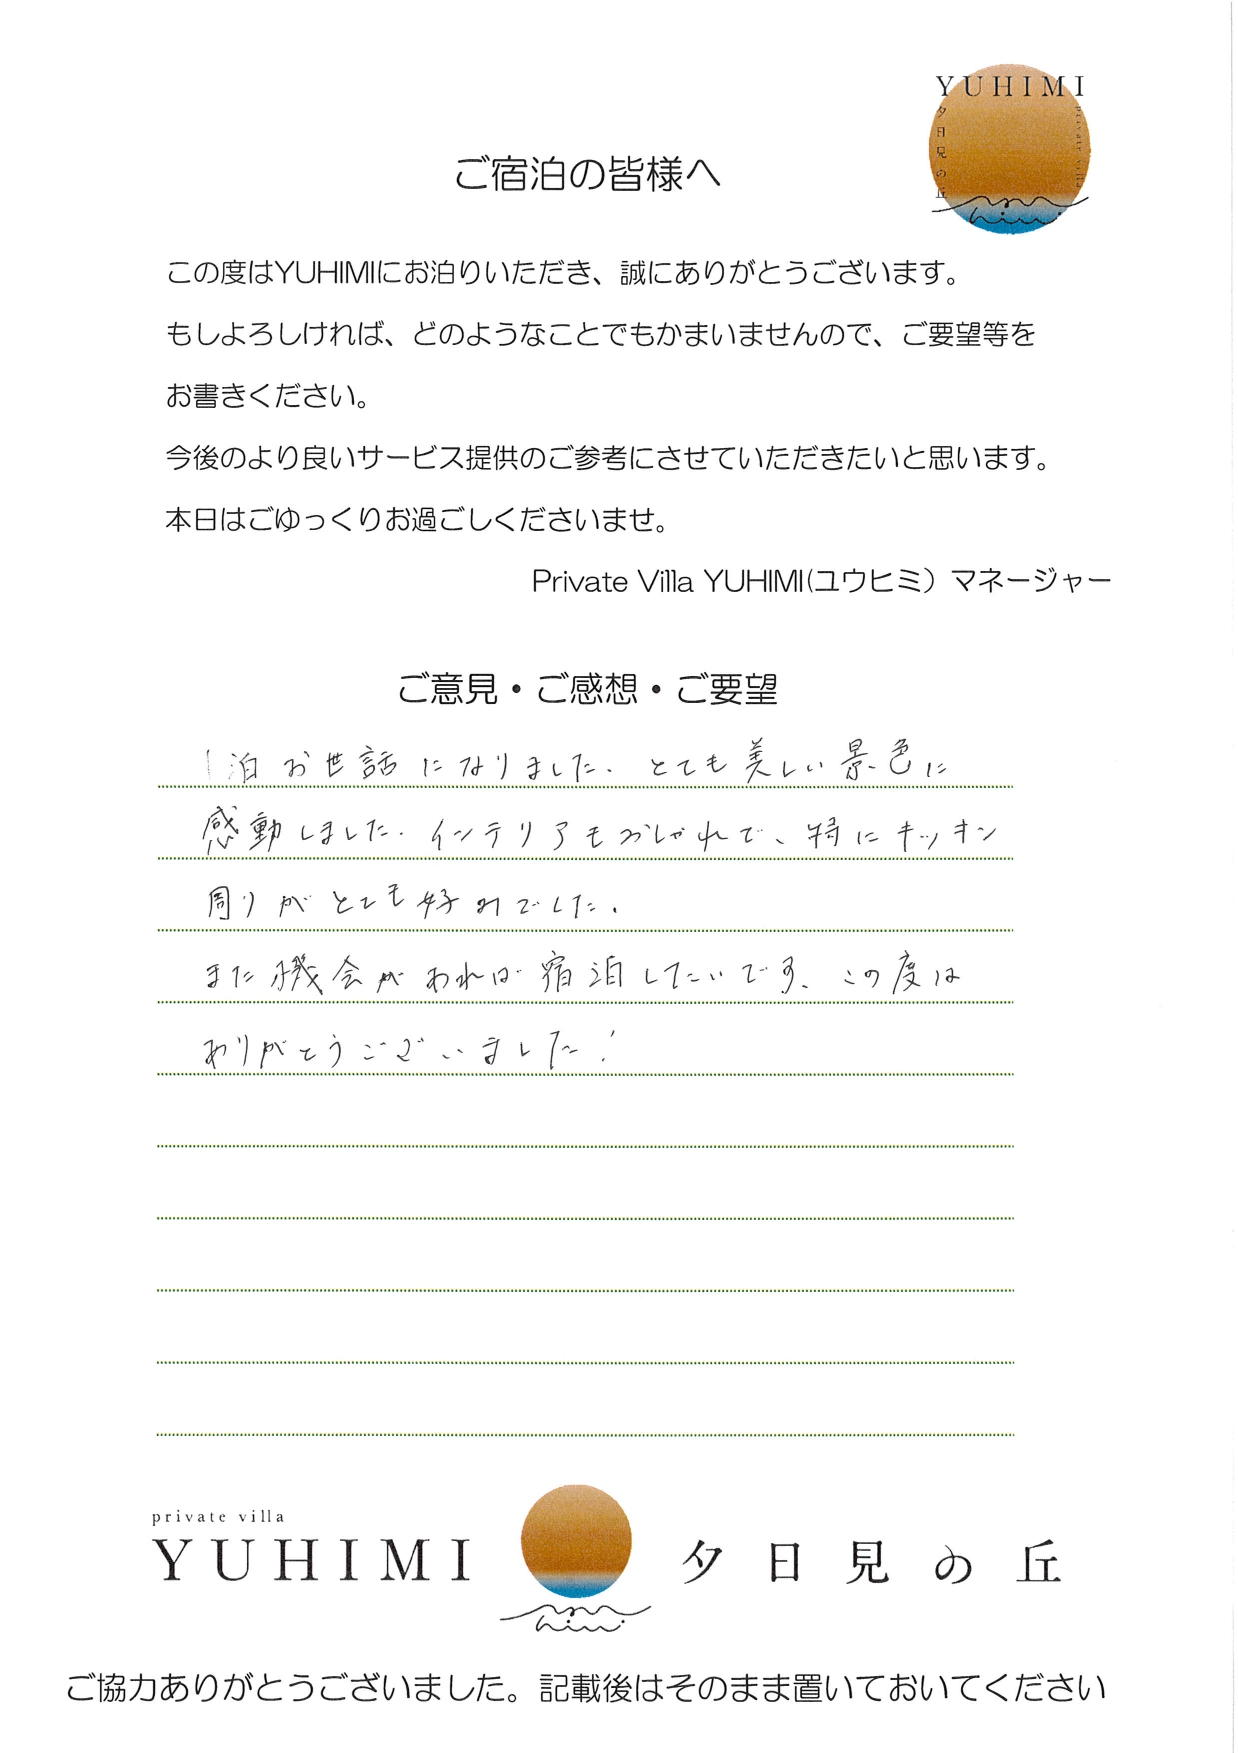 YUHIMI
夕日見の丘
private villa
ご宿泊の皆様へ
この度はYUHIMIにお泊りいただき、誠にありがとうございます。
もしよろしければ、どのようなことでもかまいませんので、ご要望等を
お書きください。
今後のより良いサービス提供のご参考にさせていただきたいと思います。
本日はごゆっくりお過ごしくださいませ。
Private Villa YUHIMI(ユウヒミ）マネージャー
ご意見・ご感想・ご要望
1泊お世話になりました。とても美しい景色に
感動しました。インテリアもおしゃれで、特にキッチン
周りがとても好みでした。
また機会があれば宿泊したいです。この度は
ありがとうございました！
private villa
YUHIMI 夕日見の丘
ご協力ありがとうございました。記載後はそのまま置いておいてください